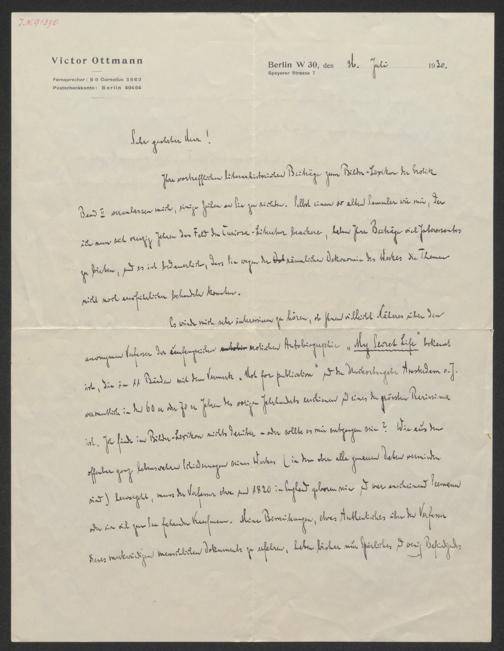 Victor Ottmann
Berlin W 30, den 16. Juli 1930.
Speyerer Strasse 7
Fernsprecher: B 5 Cornelius 3662
Postscheckkonto: Berlin
Sehr geehrter Herr!
Ihre vortrefflichen literarhistorischen Beiträge zum Bilder-Lexikon der Erotik
Band II veranlassen mich, einige Zeilen an Sie zu richten. Selbst einem so alten Sammler wie mir, der
ich nun seit vierzig Jahren das Feld der Curiosa-Literatur beackere, haben Ihre Beiträge viel Interessantes
zu bieten, und es ist bedauerlich, dass Sie wegen der räumlichen Oekonomie des Werkes die Themen
nicht noch ausführlicher behandeln konnten.
Es würde mich sehr interessieren zu hören, ob Ihnen vielleicht Näheres über den
anonymen Verfasser der umfangreichen erotischen Autobiographie „My Secret Life" bekannt
ist, die in 11 Bänden mit dem Vermerk „Not for publication" und der Druckortangabe Amsterdam o.J.
vermutlich in den 60er oder 70er Jahren des vorigen Jahrhunderts erschienen und eines der grössten Rarissima
ist. Ich finde im Bilder-Lexikon nichts darüber - oder sollte es mir entgangen sein? Wie aus den
offenbar ganz lebenswahren Schilderungen seines Werkes (in dem aber alle genauen Daten vermieden
sind) hervorgeht, muss der Verfasser etwa um 1820 in England geboren sein und war anscheinend Seemann
oder ein viel zur See fahrender Kaufmann. Meine Bemühungen, etwas Authentisches über den Verfasser
dieses merkwürdigen menschlichen Dokuments zu erfahren, haben bisher nur Spärliches und wenig Befriedigendes